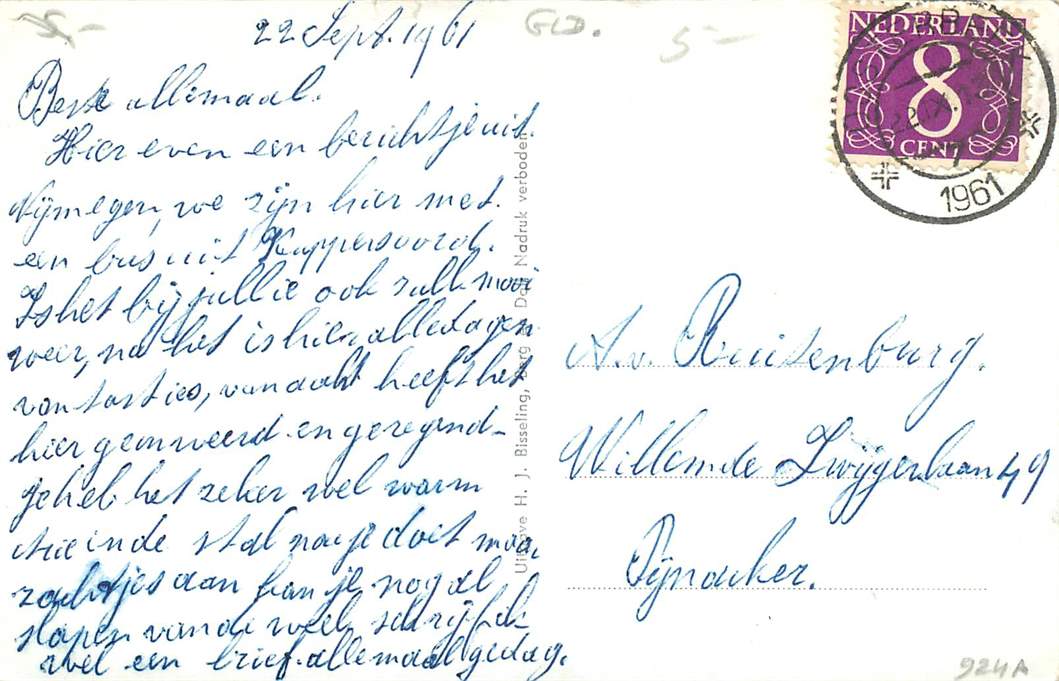 22 Sept. 1961
GLD.
5-
Beste allemaal.
Hier even een berichtje uit.
Nijmegen, we zijn hier met.
een bus uit Kuppersoord.
Is het bij jullie ook zulk mooi
weer, na het is hier alledagen
vantasties, vandaht heeft het
hier geonweerd en geregend-
je heb het zeker wel warm
in de stal na je doit maar
zachtjes aan kan je nog al
slapen van de week schrijf ik
wel een brief. allemaal gedag.
Uitgave H. J. Bisseling, Berg Dal, Nadruk verboden
NEDERLAND
8
CENT
1961
A.v. Ruitenburg.
Willem de Zwijgerlaan 49
Pijnacker.
924A